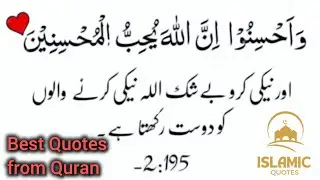 وَاَحْسِنُوْا اِنَّ اللّٰهَ يُحِبُّ الْمُحْسِنِيْنَ
اور نیکی کرو بے شک اللہ نیکی کرنے والوں
کو دوست رکھتا ہے۔
Best Quotes
from Quran
-2:195
ISLAMIC
QUOTES